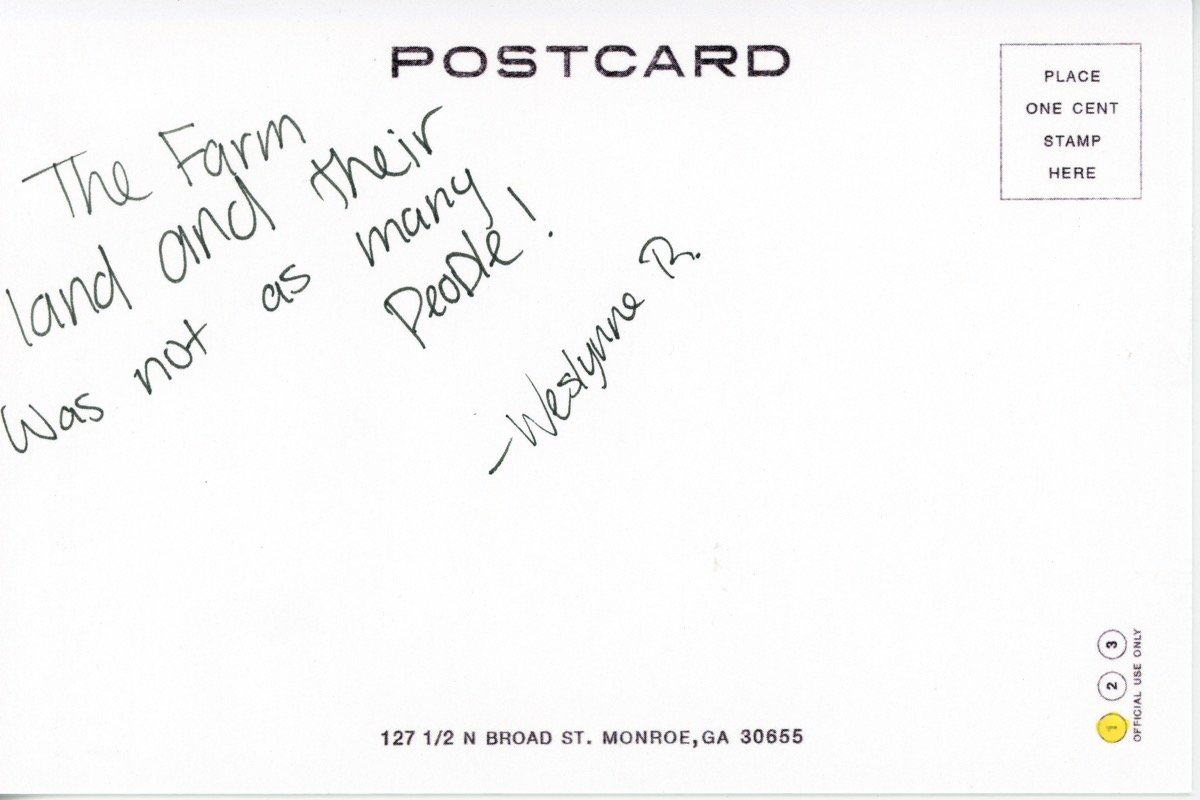 POSTCARD
PLACE
ONE CENT
STAMP
HERE
The Farm
land and their
was not as many
people!
-Weslynne R.
127 1/2 N BROAD ST. MONROE, GA 30655
1 2 3
OFFICIAL USE ONLY